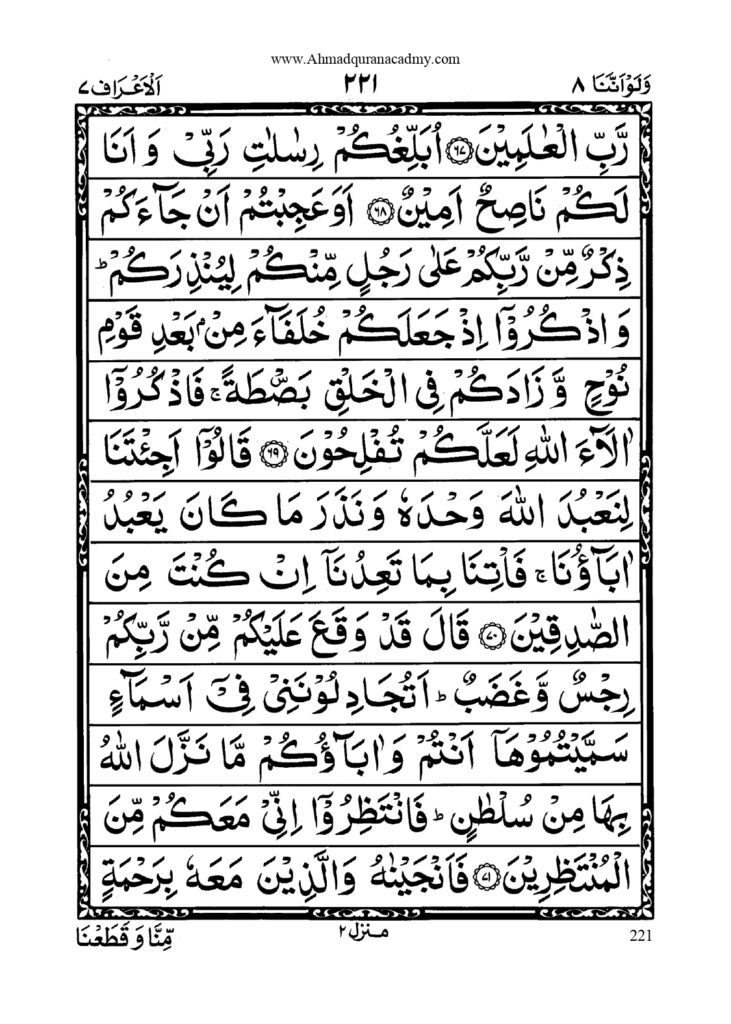 www.Ahmadquranacadmy.com
وَلَوْاَنَّنَا ٨ ٢٢١ اَلْاَعْرَاف ٧
رَّبِّ الْعٰلَمِيْنَ ﴿٦٧﴾ اُبَلِّغُكُمْ رِسٰلٰتِ رَبِّيْ وَ اَنَا
لَكُمْ نَاصِحٌ اَمِيْنٌ ﴿٦٨﴾ اَوَعَجِبْتُمْ اَنْ جَآءَكُمْ
ذِكْرٌ مِّنْ رَّبِّكُمْ عَلٰى رَجُلٍ مِّنْكُمْ لِيُنْذِرَكُمْ ؕ
وَ اذْكُرُوْۤا اِذْ جَعَلَكُمْ خُلَفَآءَ مِنْۢ بَعْدِ قَوْمِ
نُوْحٍ وَّ زَادَكُمْ فِي الْخَلْقِ بَصْۜطَةً ۚ فَاذْكُرُوْۤا
اٰلَآءَ اللّٰهِ لَعَلَّكُمْ تُفْلِحُوْنَ ﴿٦٩﴾ قَالُوْۤا اَجِئْتَنَا
لِنَعْبُدَ اللّٰهَ وَحْدَهٗ وَ نَذَرَ مَا كَانَ يَعْبُدُ
اٰبَآؤُنَا ۚ فَاْتِنَا بِمَا تَعِدُنَاۤ اِنْ كُنْتَ مِنَ
الصّٰدِقِيْنَ ﴿٧٠﴾ قَالَ قَدْ وَقَعَ عَلَيْكُمْ مِّنْ رَّبِّكُمْ
رِجْسٌ وَّ غَضَبٌ ؕ اَتُجَادِلُوْنَنِيْ فِيْۤ اَسْمَآءٍ
سَمَّيْتُمُوْهَاۤ اَنْتُمْ وَ اٰبَآؤُكُمْ مَّا نَزَّلَ اللّٰهُ
بِهَا مِنْ سُلْطٰنٍ ؕ فَانْتَظِرُوْۤا اِنِّيْ مَعَكُمْ مِّنَ
الْمُنْتَظِرِيْنَ ﴿٧١﴾ فَاَنْجَيْنٰهُ وَالَّذِيْنَ مَعَهٗ بِرَحْمَةٍ
مِّنَّا وَ قَطَعْنَا منزل ٢ 221